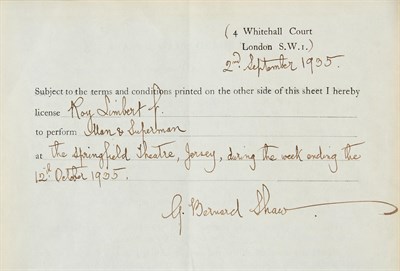 ( 4 Whitehall Court
London S.W.1.)
2nd September 1935.
Subject to the terms and conditions printed on the other side of this sheet I hereby
license Roy Limbert
to perform Man & Superman
at the Springfield Theatre, Jersey, during the week ending the
12th October 1935.
G. Bernard Shaw